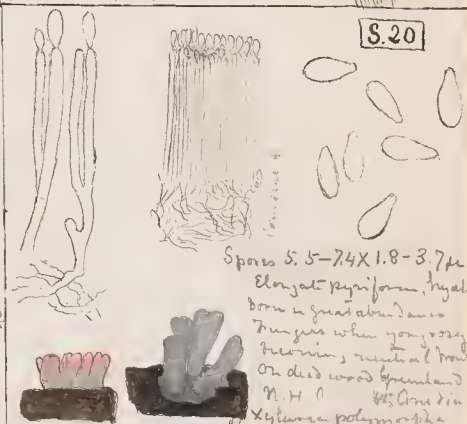 S.20
Conidia
Spores 5.5–7.4 X 1.8–3.7µ
Elongate pyriform, hyal
born in great abundance
Fungus when young rosy
becoming neutral brow
on dead wood
N.H Conidia
Xylaria polymorpha